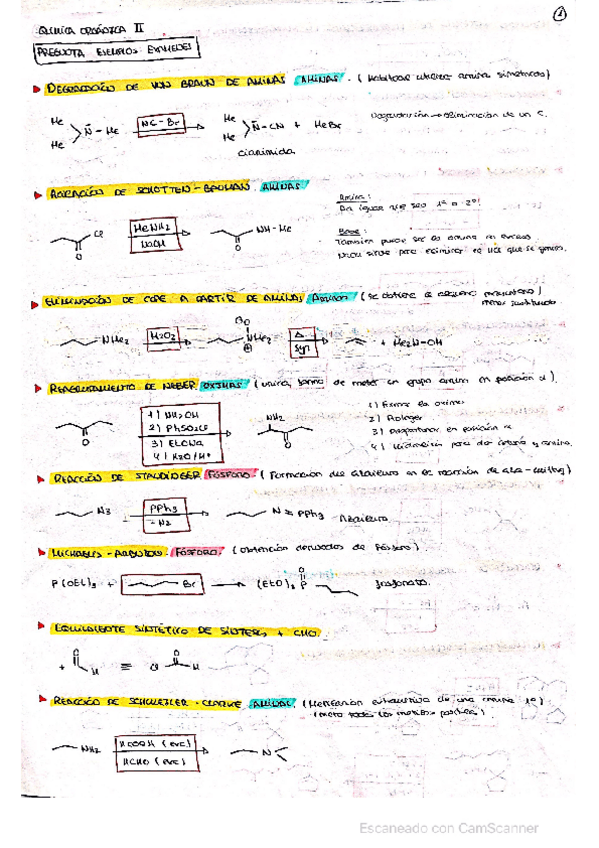 ①
QUÍMICA ORGÁNICA II
PREGUNTA EJEMPLOS EXÁMENES
DEGRADACIÓN DE VON BRAUN DE AMINAS AMINAS. (Habitual utilizar aminas simétricas)
Me
Me
N̈-Me
NC-Br
Me
Me
N̈-CN + MeBr
cianimida
Degradación → eliminación de un C.
REACCIÓN DE SCHOTTEN-BAUMAN. AMINAS
Cl
O
MeNH2
NaOH
NH-Me
O
Amina:
Da igual que sea 1ª o 2ª
Base:
También puede ser la amina en exceso.
NaOH sirve para eliminar el HCl que se genera.
ELIMINACIÓN DE COPE A PARTIR DE AMINAS AMINAS (se obtiene el alqueno
menos sustituido
NMe2
H2O2
NMe2
⊕
Δ
Syn
+ Me2N-OH
REAGRUPAMIENTO DE NEBER OXIMAS (única forma de meter un grupo amina en posición α).
O
1) NH2OH
2) PhSO2Cl
3) EtONa
4) H2O/H+
NH2
O
1) Formar la oxima
2) Proteger
3) en posición α
4) Hidrólisis para dar cetona y amina.
REACCIÓN DE STAUDINGER FÓSFORO. (Formación del azailuro en la reacción de aza-wittig)
N3
PPh3
-N2
N=PPh3
Azailuro
MICHAELIS-ARBUZOV. FÓSFORO. (obtención derivados de fósforo).
P(OEt)3 +
Br
(EtO)2 P
O
fosfonato.
EQUIVALENTE SINTÉTICO DE + CHO.
+
O
H
≡
Cl
O
H
REACCIÓN DE - CLARKE AMINAS. (Metilación exhaustiva de una amina 1ª)
(meto todos los metilos posibles)
NH2
HCOOH (exc)
HCHO (exc)
N
Escaneado con CamScanner